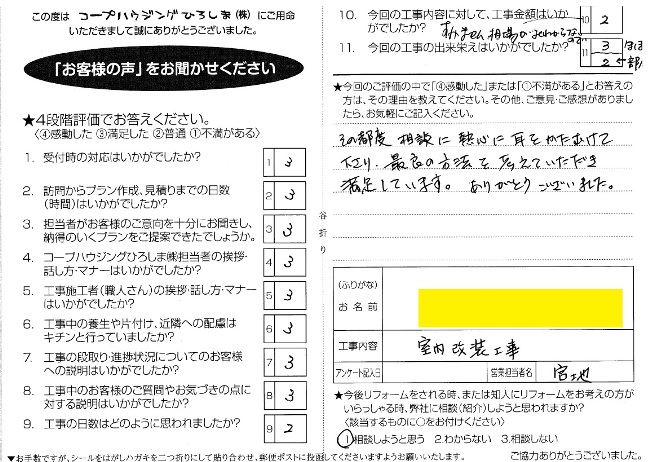 この度は コープハウジングひろしま(株) にご用命
いただきまして誠にありがとうございました。
「お客様の声」をお聞かせください
★4段階評価でお答えください。
〈④感動した ③満足した ②普通 ①不満がある〉
1. 受付時の対応はいかがでしたか? 1 3
2. 訪問からプラン作成、見積りまでの日数
(時間)はいかがでしたか? 2 3
3. 担当者がお客様のご意向を十分にお聞きし、
納得のいくプランをご提案できたでしょうか。 3 3
4. コープハウジングひろしま㈱担当者の挨拶・
話し方・マナーはいかがでしたか? 4 3
5. 工事施工者(職人さん)の挨拶・話し方・マナー
はいかがでしたか? 5 3
6. 工事中の養生や片付け、近隣への配慮は
キチンと行っていましたか? 6 3
7. 工事の段取り・進捗状況についてのお客様
への説明はいかがでしたか? 7 3
8. 工事中のお客様のご質問やお気づきの点に
対する説明はいかがでしたか? 8 3
9. 工事の日数はどのように思われましたか? 9 2
▼お手数ですが、シールをはがしハガキを二つ折りにして貼り合わせ、郵便ポストに投函してくださいますようお願いいたします。
谷折り
10. 今回の工事内容に対して、工事金額はいか
がでしたか? 10 2
すみません 相場がよくわからない
11. 今回の工事の出来栄えはいかがでしたか? 11 3 ほぼ
2 一部
★今回のご評価の中で「④感動した」または「①不満がある」とお答えの
方は、その理由を教えてください。その他、ご意見・ご感想がありまし
たら、お気軽にご記入ください。
その都度 相談に 熱心に 耳をかたむけて
下さり、最良の方法を 考えていただき
満足しています。 ありがとうございました。
(ふりがな)
お名前
工事内容 室内改装工事
アンケート記入日 営業担当者名 宮地
★今後リフォームをされる時、または知人にリフォームをお考えの方が
いらっしゃる時、弊社に相談(紹介)しようと思われますか?
〈該当するものに○をお付けください〉
1.相談しようと思う 2.わからない 3.相談しない
ご協力ありがとうございました。